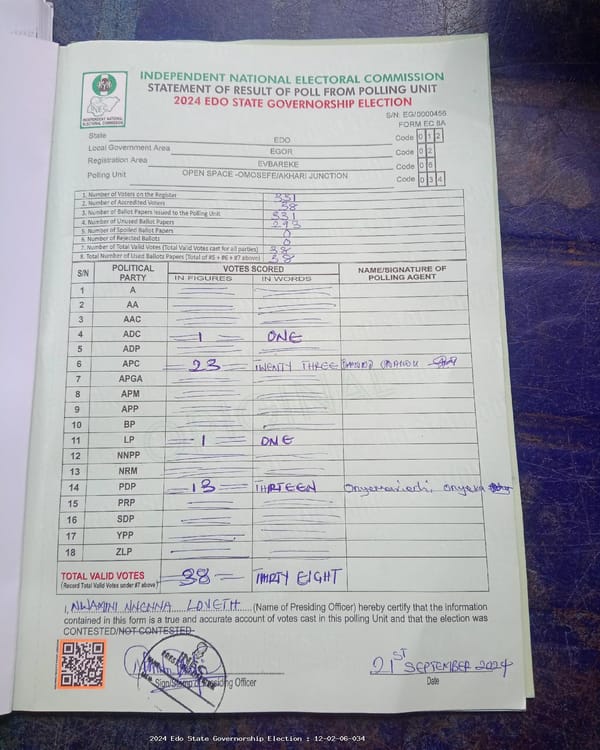 INDEPENDENT NATIONAL ELECTORAL COMMISSION
STATEMENT OF RESULT OF POLL FROM POLLING UNIT
2024 EDO STATE GOVERNORSHIP ELECTION
INDEPENDENT NATIONAL ELECTORAL COMMISSION
S/N: EG/0000456
FORM EC 8A
State EDO Code 0 1 2
Local Government Area EGOR Code 0 2
Registration Area EVBAREKE Code 0 6
Polling Unit OPEN SPACE -OMOSEFE/AKHARI JUNCTION Code 0 3 4
1. Number of Voters on the Register 331
2. Number of Accredited Voters 38
3. Number of Ballot Papers Issued to the Polling Unit 331
4. Number of Unused Ballot Papers 293
5. Number of Spoiled Ballot Papers 0
6. Number of Rejected Ballots 0
7. Number of Total Valid Votes (Total Valid Votes cast for all parties) 38
8. Total Number of Used Ballots Papers (Total of #5 + #6 + #7 above) 38
S/N POLITICAL PARTY VOTES SCORED NAME/SIGNATURE OF POLLING AGENT
IN FIGURES IN WORDS
1 A
2 AA
3 AAC
4 ADC 1 ONE
5 ADP
6 APC 23 TWENTY THREE
7 APGA
8 APM
9 APP
10 BP
11 LP 1 ONE
12 NNPP
13 NRM
14 PDP 13 THRTEEN
15 PRP
16 SDP
17 YPP
18 ZLP
TOTAL VALID VOTES 38 THIRTY EIGHT
(Record Total Valid Votes under #7 above)
I, NWAMINI NNENNA LOVETH (Name of Presiding Officer) hereby certify that the information
contained in this form is a true and accurate account of votes cast in this polling Unit and that the election was
CONTESTED/NOT CONTESTED
21ST SEPTEMBER 2024
Sign/Stamp of Presiding Officer Date
2024 Edo State Governorship Election : 12-02-06-034